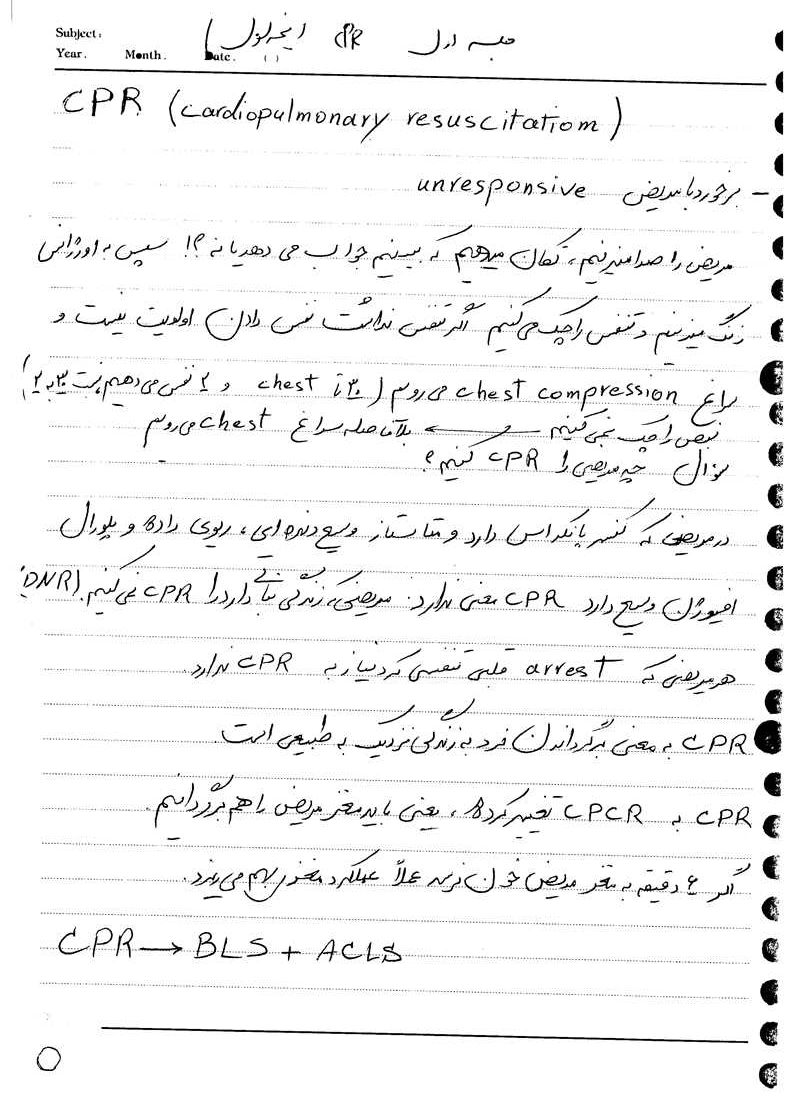 Subject:
Year. Month. Date. ( )
جلسه اول CPR
CPR (cardiopulmonary resuscitatiom)
- برخورد با مریض unresponsive
مریض را صدا میزنیم، تکان میدهیم که ببینیم جواب می دهد یا نه؟! سپس به اورژانس
زنگ میزنیم و تنفس را چک می کنیم اگر تنفس نداشت نفس دادن اولویت نیست و
سراغ chest compression می رویم (۳۰ تا chest و ۲ نفس می دهیم ۳۰ به ۲)
نبض را چک نمی کنیم ← بلافاصله سراغ chest می رویم
سوال چه مریضی را CPR کنیم؟
در مریضی که کنسر پانکراس دارد و متاستاز وسیع دنده ای، ریوی داده و پلورال
افیوژن وسیع دارد CPR معنی ندارد. مریضی که زندگی نباتی دارد را CPR نمی کنیم. (DNR)
هر مریضی که arrest قلبی تنفسی کرد نیاز به CPR ندارد.
CPR به معنی برگرداندن فرد به زندگی نزدیک به طبیعی است.
CPR به CPCR تغییر کرده، یعنی باید مغز مریض را هم برگردانیم.
اگر ۴ دقیقه به مغز مریض خون نرسد عملاً عملکرد مغز بهم می ریزد.
CPR → BLS + ACLS